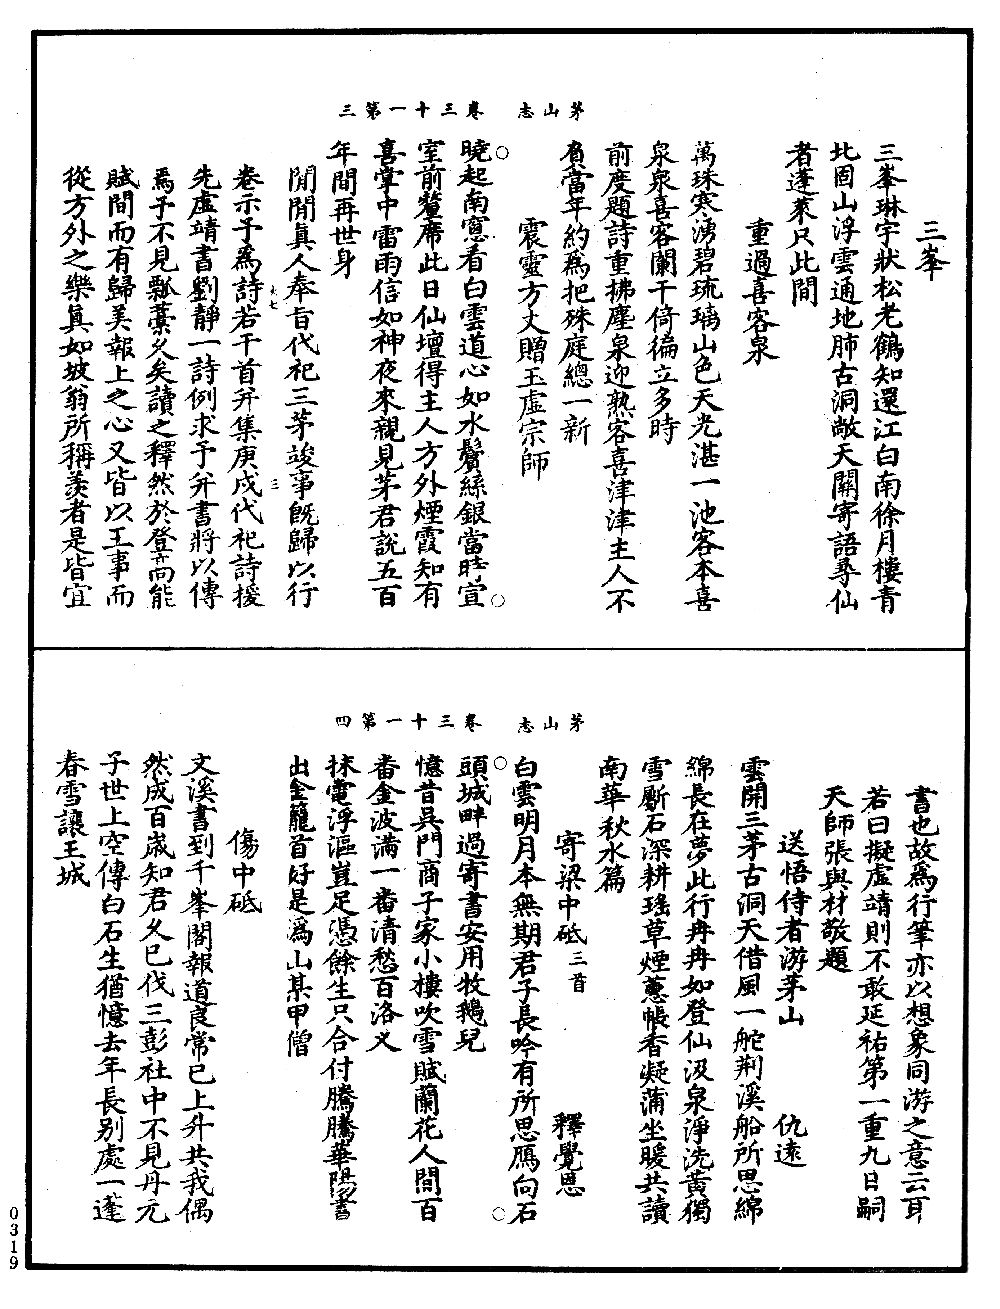 茅山志　卷三十一第三
三峯
三峯琳宇狀松老鶴知還江白南徐月樓青
北固山浮雲通地肺古洞敞天關寄語尋仙
者蓬萊只此間
重過喜客泉
萬珠寒湧碧琉璃山色天光湛一池客本喜
泉泉喜客闌干倚徧立多時
前度題詩重拂塵泉迎熟客喜津津主人不
負當年約爲把硃庭總一新
震靈方丈贈玉虛宗師
曉起南窻看白雲道心如水鬢絲銀當時宣
室前釐席此日仙壇得主人方外煙霞知有
喜掌中雷雨信如神夜來親見茅君說五百
年間再世身
閒閒眞人奉旨代祀三茅竣事旣歸以行
卷示予爲詩若干首并集庚戌代祀詩援
先虛靖書劉靜一詩例求予并書將以傳
焉予不見瓢藁久矣讀之釋然於登高能
賦間而有歸美報上之心又皆以王事而
從方外之樂眞如坡翁所稱羨者是皆宜
茅山志　卷三十一第四
書也故爲行筆亦以想象同游之意云耳
若曰擬虛靖則不敢延祐第一重九日嗣
天師張與材敬題
送悟侍者游茅山　仇遠
雲開三茅古洞天借風一舵荆溪船所思綿
綿長在夢此行冉冉如登仙汲泉淨洗黃獨
雪斸石深耕瑤草煙蕙帳香凝蒲坐暖共讀
南華秋水篇
寄梁中砥三首　釋覺恩
白雲明月本無期君子長吟有所思鴈向石
頭城畔過寄書安用牧鵝兒
憶昔吳門商子家小樓吹雪賦蘭花人間百
番金波滿一番清愁百洛义
抹電浮漚豈足憑餘生只合付騰騰華陽書
出金籠首好是潙山某甲僧
傷中砥
文溪書到千峯閣報道良常已上升共我偶
然成百歲知君久已伐三彭社中不見丹元
子世上空傳白石生猶憶去年長别處一蓬
春雪讓王城
0319